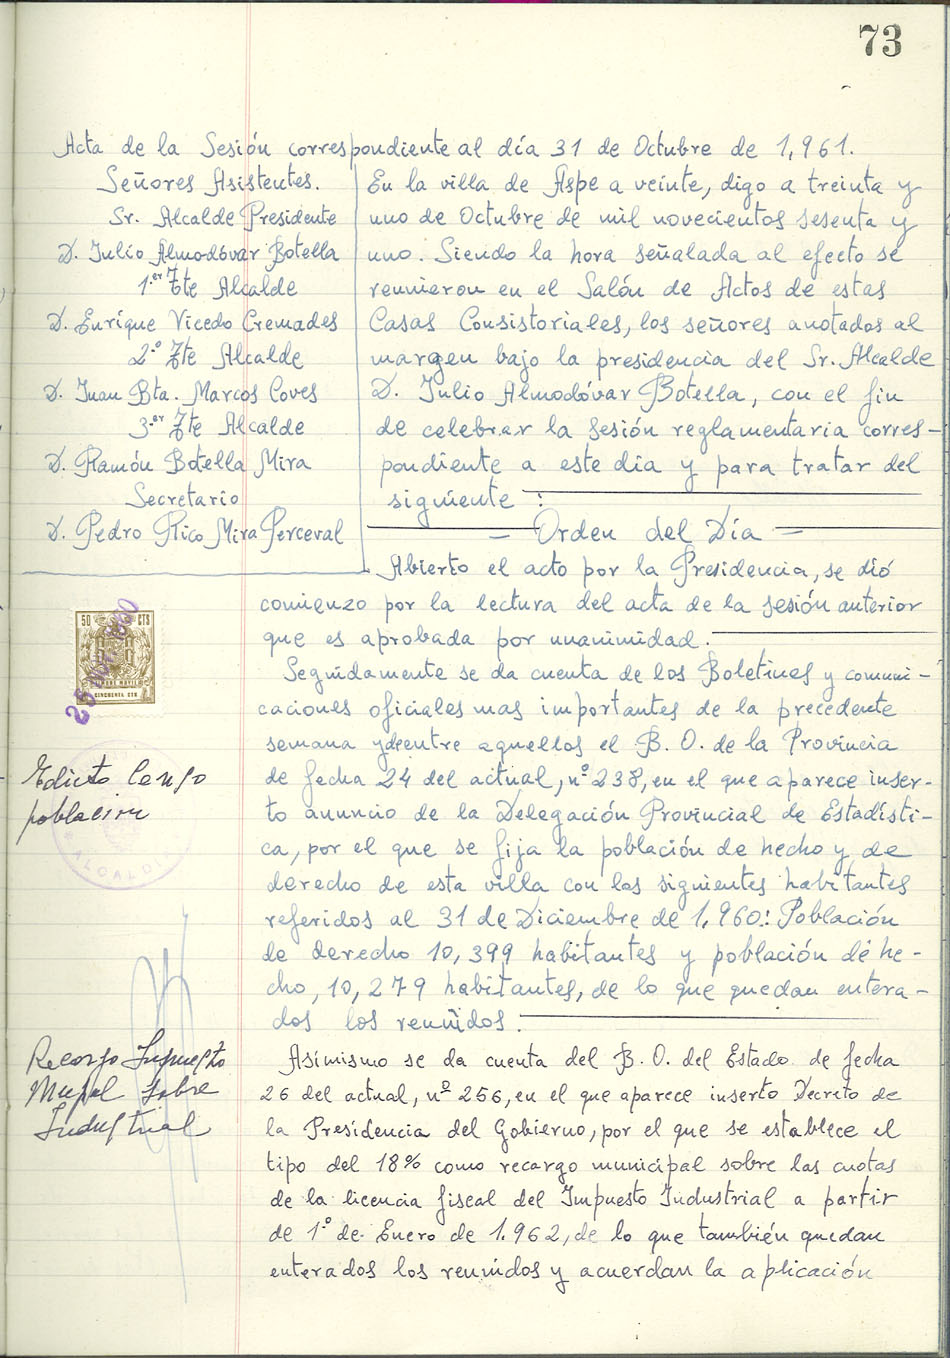 73
Acta de la Sesión correspondiente al día 31 de Octubre de 1,961.
Señores Asistentes.
Sr. Alcalde Presidente
D. Julio Almodóvar Botella
1.er Tte Alcalde
D. Enrique Vicedo Cremades
2º Tte Alcalde
D. Juan Bta. Marcos Coves
3.er Tte Alcalde
D. Ramón Botella Mira
Secretario
D. Pedro Rico Mira Perceval
En la villa de Aspe a veinte, digo a treinta y
uno de Octubre de mil novecientos sesenta y
uno. Siendo la hora señalada al efecto se
reunieron en el Salón de Actos de estas
Casas Consistoriales, los señores anotados al
margen bajo la presidencia del Sr. Alcalde
D. Julio Almodóvar Botella, con el fin
de celebrar la sesión reglamentaria corres-
pondiente a este dia y para tratar del
siguiente :
— Orden del Día —
Abierto el acto por la Presidencia, se dió
comienzo por la lectura del acta de la sesión anterior
que es aprobada por unanimidad.
Seguidamente se da cuenta de los Boletines y comuni-
caciones oficiales mas importantes de la precedente
semana y de entre aquellos el B. O. de la Provincia
de fecha 24 del actual, nº 238, en el que aparece inser-
to anuncio de la Delegación Provincial de Estadísti-
ca, por el que se fija la población de hecho y de
derecho de esta villa con los siguientes habitantes
referidos al 31 de Diciembre de 1,960: Población
de derecho 10,399 habitantes y población de he-
cho, 10,279 habitantes, de lo que quedan entera-
dos los reunidos.
Asímismo se da cuenta del B. O. del Estado de fecha
26 del actual, nº 256, en el que aparece inserto Decreto de
la Presidencia del Gobierno, por el que se establece el
tipo del 18% como recargo municipal sobre las cuotas
de la licencia fiscal del Impuesto Industrial a partir
de 1º de Enero de 1.962, de lo que también quedan
enterados los reunidos y acuerdan la aplicación
50 CTS
CINCUENTA CTS
ALCALDIA
Edicto Censo
población
Recargo Impuesto
Mupal sobre
Industrial